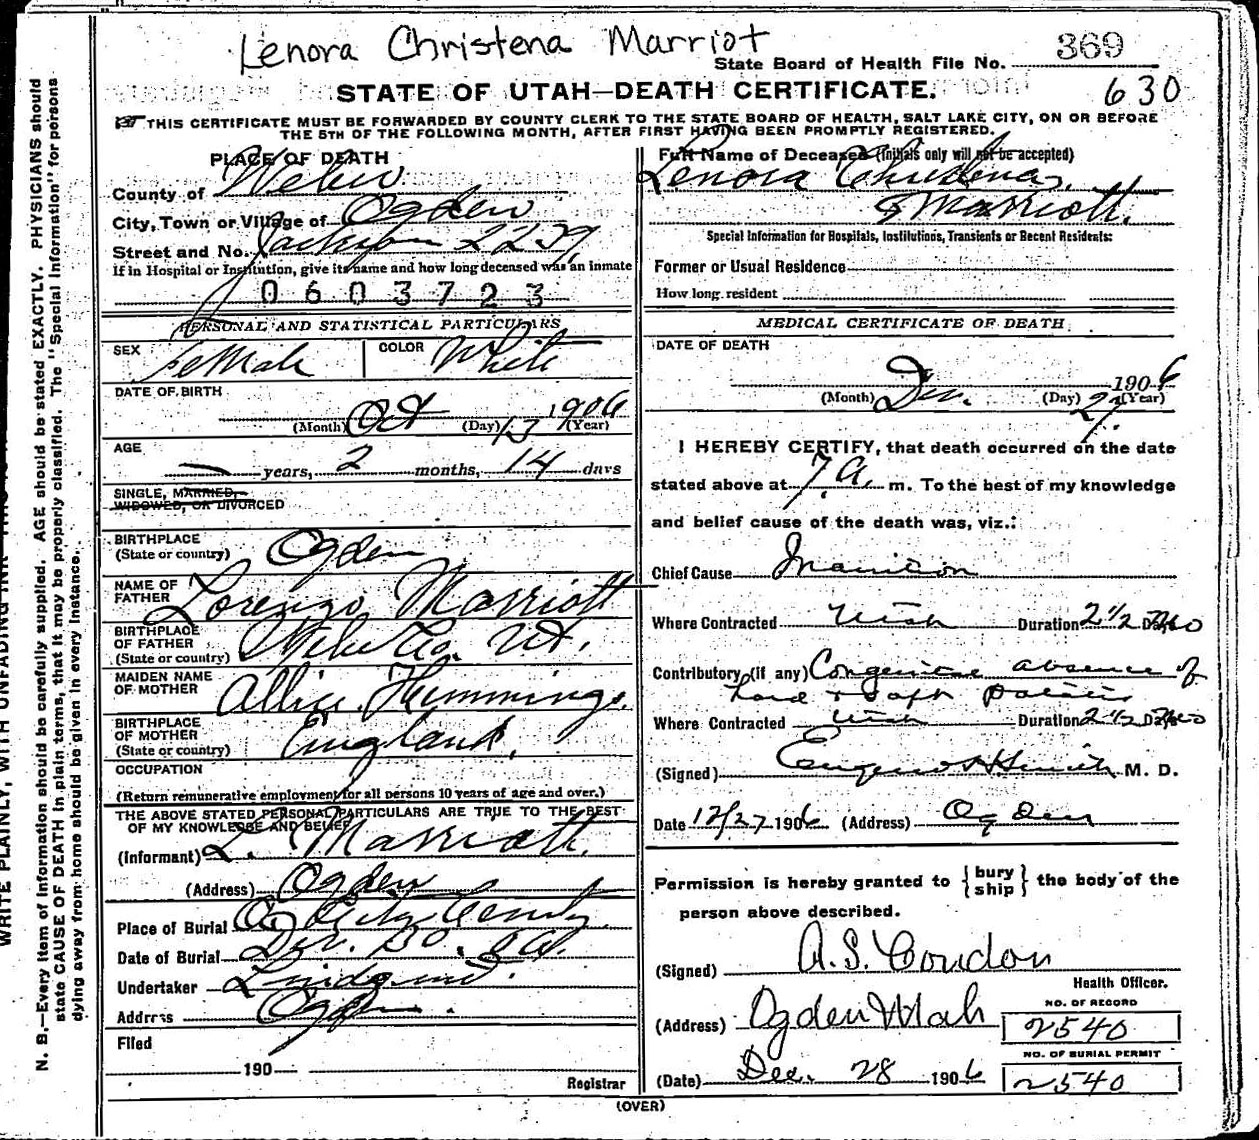 Lenora Christena Marriot
State Board of Health File No. 369
STATE OF UTAH—DEATH CERTIFICATE.
630
THIS CERTIFICATE MUST BE FORWARDED BY COUNTY CLERK TO THE STATE BOARD OF HEALTH, SALT LAKE CITY, ON OR BEFORE
THE 5TH OF THE FOLLOWING MONTH, AFTER FIRST HAVING BEEN PROMPTLY REGISTERED.
WRITE PLAINLY, WITH UNFADING INK
N. B.—Every item of information should be carefully supplied. AGE should be stated EXACTLY. PHYSICIANS should
state CAUSE OF DEATH in plain terms, that it may be properly classified. The "Special Information" for persons
dying away from home should be given in every instance.
PLACE OF DEATH
County of Weber
City, Town or Village of Ogden
Street and No. Jackson 2239
If in Hospital or Institution, give its name and how long deceased was an inmate
0603723
PERSONAL AND STATISTICAL PARTICULARS
SEX Female COLOR White
DATE OF BIRTH
(Month) Oct (Day) 13 1906 (Year)
AGE
— years, 2 months, 14 days
SINGLE, MARRIED,
WIDOWED, OR DIVORCED
BIRTHPLACE
(State or country) Ogden
NAME OF
FATHER Lorenzo Marriott
BIRTHPLACE
OF FATHER
(State or country) Weber Co. Ut.
MAIDEN NAME
OF MOTHER Allice Hemmings.
BIRTHPLACE
OF MOTHER
(State or country) England.
OCCUPATION
(Return remunerative employment for all persons 10 years of age and over.)
THE ABOVE STATED PERSONAL PARTICULARS ARE TRUE TO THE BEST
OF MY KNOWLEDGE AND BELIEF
(Informant) L. Marriott.
(Address) Ogden
Place of Burial O City
Date of Burial Dec. 30.
Undertaker
Address Ogden.
Filed
190
Registrar
Full Name of Deceased (Initials only will not be accepted)
Lenora Christena
Marriott.
Special Information for Hospitals, Institutions, Transients or Recent Residents:
Former or Usual Residence
How long resident
MEDICAL CERTIFICATE OF DEATH
DATE OF DEATH
1906
(Month) Dec. (Day) 27. (Year)
I HEREBY CERTIFY, that death occurred on the date
stated above at 7 A. m. To the best of my knowledge
and belief cause of the death was, viz.:
Chief Cause Inanition
Where Contracted Utah Duration 2 1/2 Days
Contributory (if any) Congenital absence of
hard & soft palates
Where Contracted Utah Duration 2 1/2 Days
(Signed) Eugene H Smith M. D.
Date 12/27 1906 (Address) Ogden
Permission is hereby granted to {bury ship} the body of the
person above described.
(Signed) A.S. Condon
Health Officer.
(Address) Ogden Utah
NO. OF RECORD
2540
NO. OF BURIAL PERMIT
2540
(Date) Dec. 28 1906
(OVER)